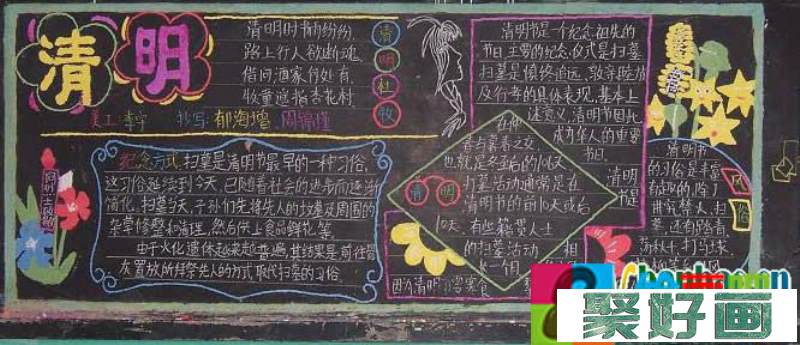 清明
清明时节雨纷纷,
路上行人欲断魂,
借问酒家何处有,
牧童遥指杏花村.
清明杜牧
美工:李宁 抄写:郁海增
纪念方式:扫墓是清明节最早的一种习俗,
这习俗延续到今天,已随着社会的进步而逐渐
简化,扫墓当天,子孙们先将先人的坟墓及周围的
杂草修整和清理,然后供上食品鲜花等.
由于火化遗体越来越普遍,其结果是前往骨
灰置放所拜祭先人的方式取代扫墓的习俗.
清明节是一个纪念祖先的
节日.主要的纪念仪式是扫墓
扫墓是慎终追远、敦亲睦族
及行孝的具体表现,基本上
述意义,清明节因此
成为华人的重要
节日.
在仲
春与暮春之交
也就是冬至后的106天
扫墓活动通常是在
清明节的前10天或后
10天,有些籍贯人士
的扫墓活动
长一个月
清明
清明
清明节
的习俗是丰富
有趣的,除了
讲究禁火、扫
墓,还有踏青、
荡秋千、打马球、
风俗
聚好画